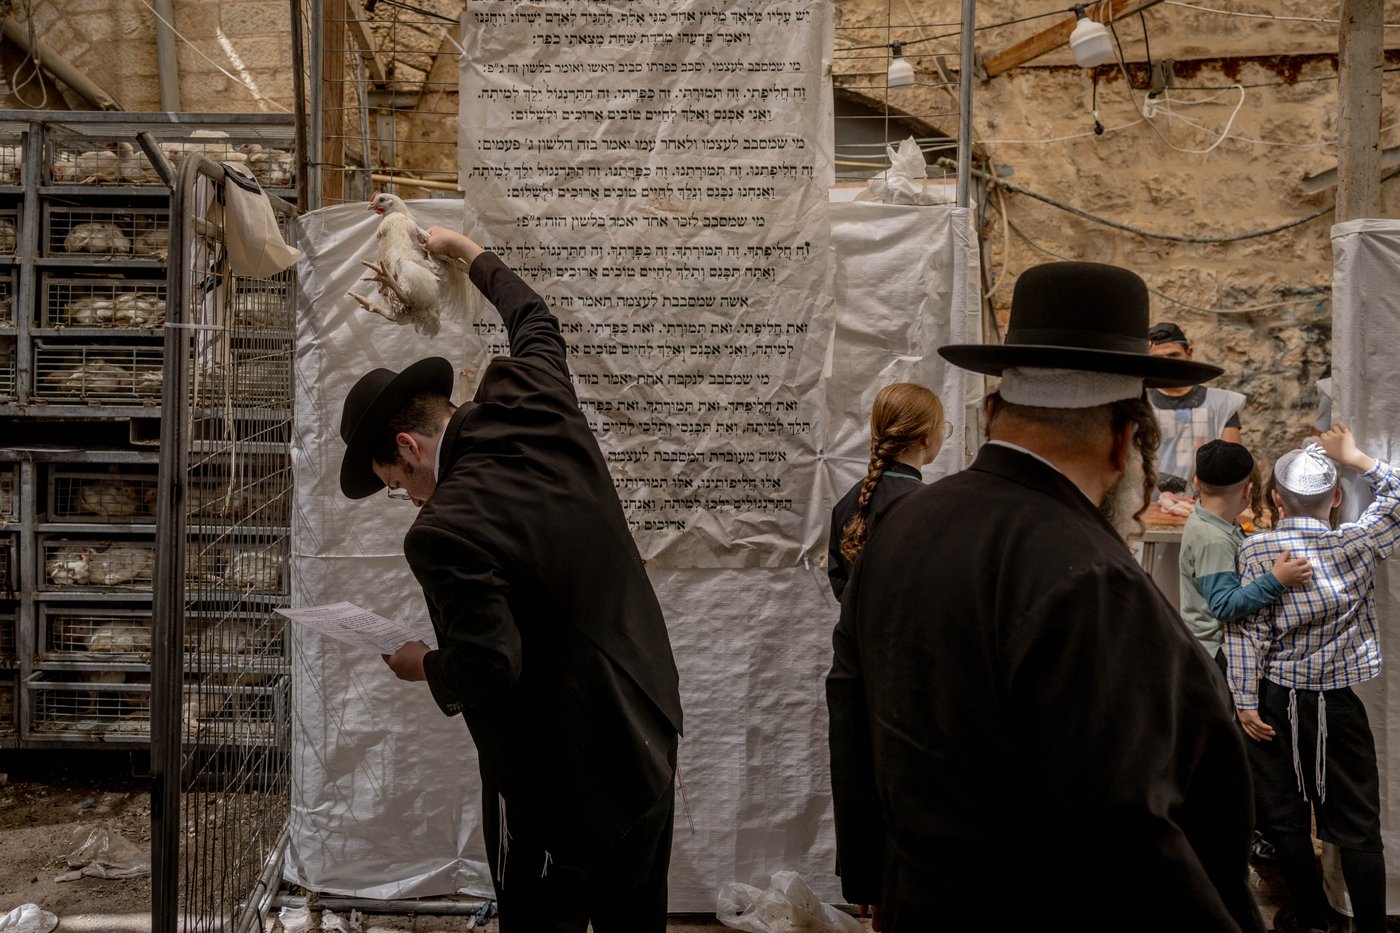 יֵשׁ עָלָיו מַלְאָךְ מֵלִיץ אֶחָד מִנִּי אָלֶף. לְהַגִּיד לְאָדָם יָשְׁרוֹ: וַיְחֻנֶּנּוּ
וַיֹּאמֶר פְּדָעֵהוּ מֵרֶדֶת שַׁחַת מָצָאתִי כֹפֶר:
מי שמסבב לעצמו, יסבב כפרתו סביב ראשו ואומר בלשון זה ג"פ:
זֶה חֲלִיפָתִי. זֶה תְּמוּרָתִי. זֶה כַּפָּרָתִי. זֶה הַתַּרְנְגוֹל יֵלֵךְ לְמִיתָה.
וַאֲנִי אֶכָּנֵס וְאֵלֵךְ לְחַיִּים טוֹבִים אֲרוּכִּים וּלְשָׁלוֹם:
מי שמסבב לעצמו ולאחר עמו יאמר בזה הלשון ג' פעמים:
זֶה חֲלִיפָתֵנוּ. זֶה תְּמוּרָתֵנוּ. זֶה כַּפָּרָתֵנוּ. זֶה הַתַּרְנְגוֹל יֵלֵךְ לְמִיתָה,
וַאֲנַחְנוּ נִכָּנֵס וְנֵלֵךְ לְחַיִּים טוֹבִים אֲרוּכִּים וּלְשָׁלוֹם:
מי שמסבב לזכר אחד יאמר בלשון הזה ג"פ:
זֶה חֲלִיפָתְךָ. זֶה תְּמוּרָתְךָ. זֶה כַּפָּרָתְךָ. זֶה הַתַּרְנְגוֹל יֵלֵךְ
וְאַתָּה תִּכָּנֵס וְתֵלֵךְ לְחַיִּים טוֹבִים אֲרוּכִּים וּלְשָׁלוֹם:
אשה שמסבבת לעצמה תאמר זה ג"
זֹאת חֲלִיפָתִי. זֹאת תְּמוּרָתִי. זֹאת כַּפָּרָתִי. זֹאת תֵּלֵךְ
לְמִיתָה, וַאֲנִי אֶכָּנֵס וְאֵלֵךְ לְחַיִּים טוֹבִים
מי שמסבב לנקבה אחת יאמר בזה
זֹאת חֲלִיפָתֵךְ. זֹאת תְּמוּרָתֵךְ. זֹאת כַּפָּרָ
תֵּלֵךְ לְמִיתָה, וְאַתְּ תִּכָּנְסִי וְתֵלְכִי לְחַיִּים טוֹ
אשה מעוברת המסבבת לעצמה
אֵלּוּ חֲלִיפוֹתֵינוּ, אֵלּוּ תְּמוּרוֹתֵינוּ
הַתַּרְנְגוֹלִים יֵלְכוּ לְמִיתָה, וַאֲנַחְנוּ
אֲרוּכִים וּלְ